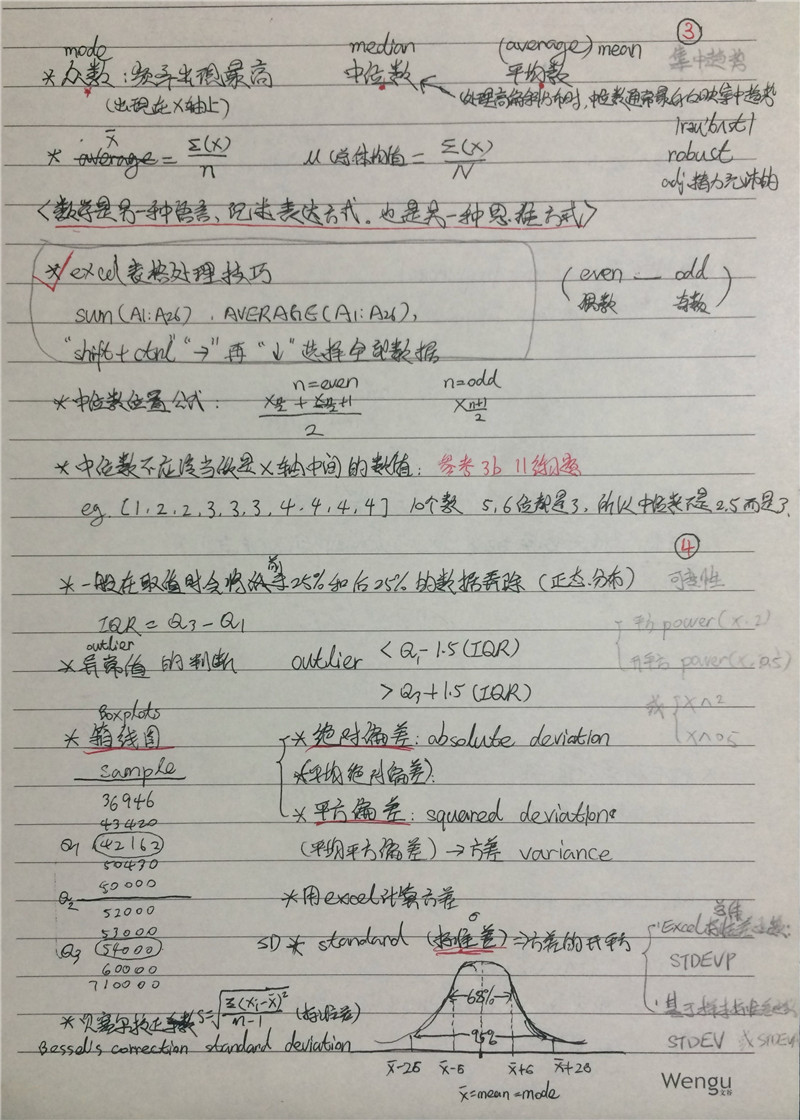 ③
mode median (average) mean 集中趋势
* 众数：频率出现最高 中位数 平均数
(出现在X轴上) 处理高偏斜分布时，中位数通常最好的反映集中趋势
x̄ |rəu'bʌst|
* average = Σ(x)/n μ 总体均值 = Σ(x)/N robust
adj.精力充沛的
<数学是另一种语言、另类表达方式。也是另一种思维方式>
* excel表格处理技巧 (even — odd)
偶数 奇数
sum(A1:A26)，AVERAGE(A1:A26)，
"shift + ctrl" "→" 再 "↓" 选择全部数据
n=even n=odd
* 中位数位置公式： (x n/2 + x n/2+1)/2 x (n+1)/2
* 中位数不应该当做是X轴中间的数值：参考3b 11练习题
eg. [1, 2, 2, 3, 3, 3, 4, 4, 4, 4] 10个数 5,6位都是3，所以中位数不是2.5而是3.
④
前
* 一般在取值时会将 25%和后25%的数据弃除 (正态分布) 可变性
IQR = Q3 - Q1 平方 power(x,2)
outlier
* 异常值的判断 outlier < Q1 - 1.5(IQR) 开平方 power(x,0.5)
> Q3 + 1.5(IQR) 或 x^2
x^0.5
Boxplots
* 箱线图 * 绝对偏差：absolute deviation
sample *(平均绝对偏差).
36946
43420 * 平方偏差：squared deviation
Q1 (42162) (平均平方偏差) → 方差 variance
50430
50000 * 用excel计算方差
Q2
52000
53000 σ 总体
Q3 (54000) SD * standard (标准差) ⇒ 方差的开平方 Excel标准差函数：
60000 STDEVP
710000
68%
* 贝塞尔校正 S=√(Σ(xi-x̄)²/(n-1)) (标准差) 基于样本标准差
Bessel's correction standard deviation 95% STDEV 或 STDEV
x̄-2δ x̄-δ x̄+δ x̄+2δ
x̄=mean=mode
Wengu 文谷